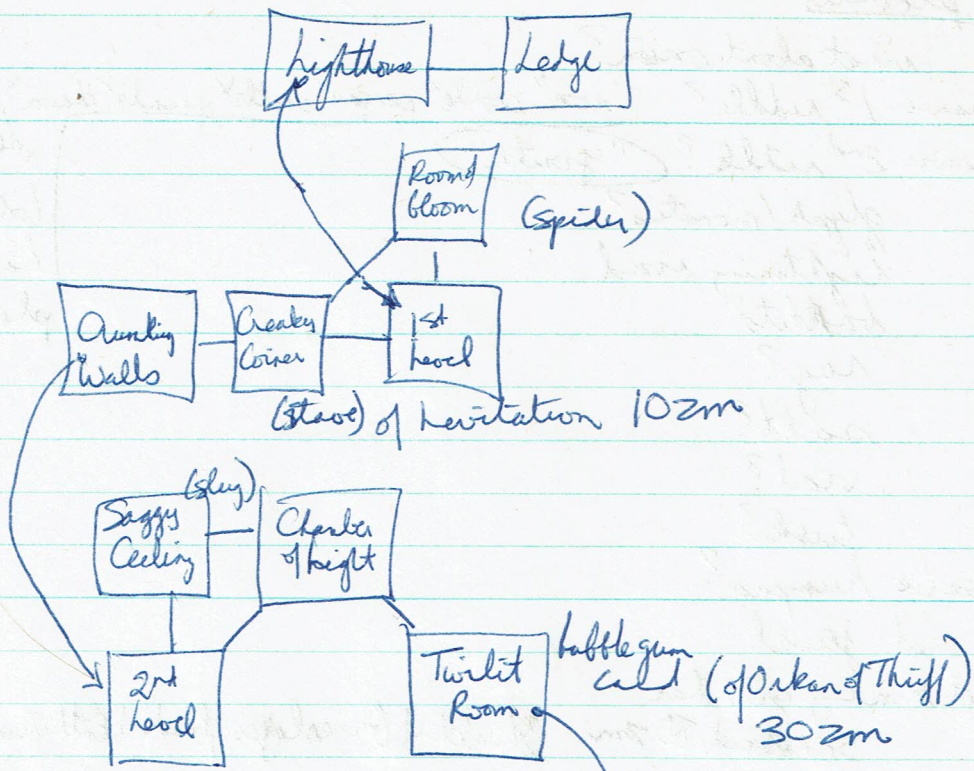 Lighthouse
Ledge
Room of
Gloom
(spider)
Walls
Creaky
Corner
1st
Level
(stave) of Levitation 10zm
(slug)
Saggy
Ceiling
Chamber
of Light
2nd
Level
Twilit
Room
bubblegum
card (of Orkan of Thriff)
30zm